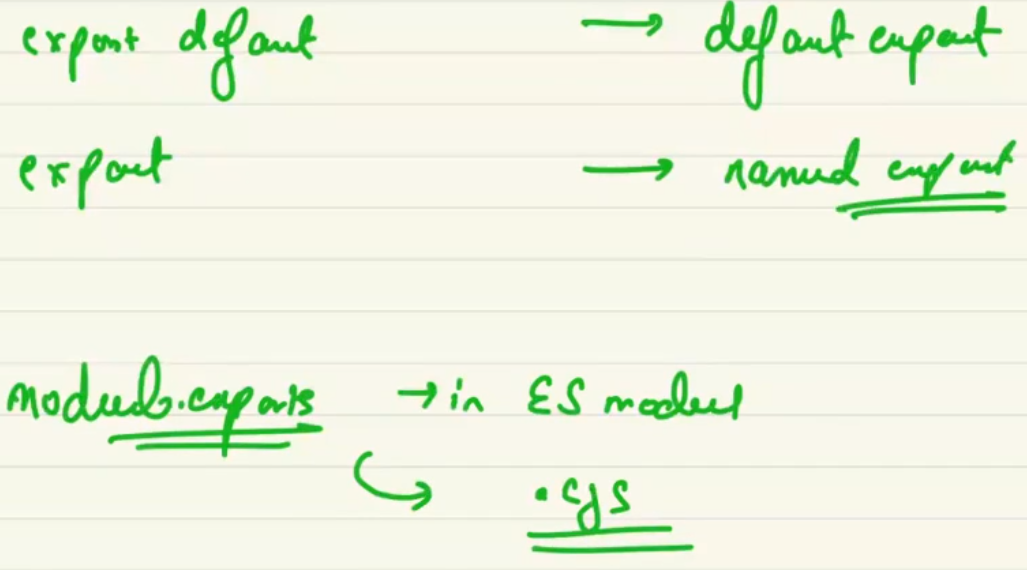 export default → default export
export → named export
module.exports → in ES module
.cjs